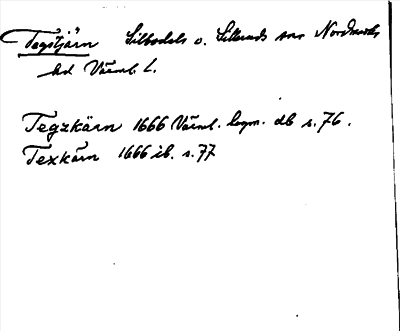 Tegstjärn Silbodals o. Silleruds snr Nordmarks
hd Värml. L.
Tegzkärn 1666 Värml. lagm. db s. 76.
Texkärn 1666 ib. s. 77